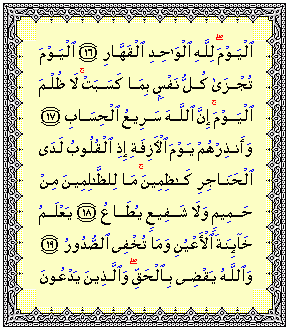 ٱلۡيَوۡمَۖ لِلَّهِ ٱلۡوَٰحِدِ ٱلۡقَهَّارِ ١٦ ٱلۡيَوۡمَ
تُجۡزَىٰ كُلُّ نَفۡسِۭ بِمَا كَسَبَتۡۚ لَا ظُلۡمَ
ٱلۡيَوۡمَۚ إِنَّ ٱللَّهَ سَرِيعُ ٱلۡحِسَابِ ١٧
وَأَنذِرۡهُمۡ يَوۡمَ ٱلۡأٓزِفَةِ إِذِ ٱلۡقُلُوبُ لَدَى
ٱلۡحَنَاجِرِ كَٰظِمِينَۚ مَا لِلظَّٰلِمِينَ مِنۡ
حَمِيمٖ وَلَا شَفِيعٖ يُطَاعُ ١٨ يَعۡلَمُ
خَآئِنَةَ ٱلۡأَعۡيُنِ وَمَا تُخۡفِي ٱلصُّدُورُ ١٩
وَٱللَّهُ يَقۡضِي بِٱلۡحَقِّۖ وَٱلَّذِينَ يَدۡعُونَ